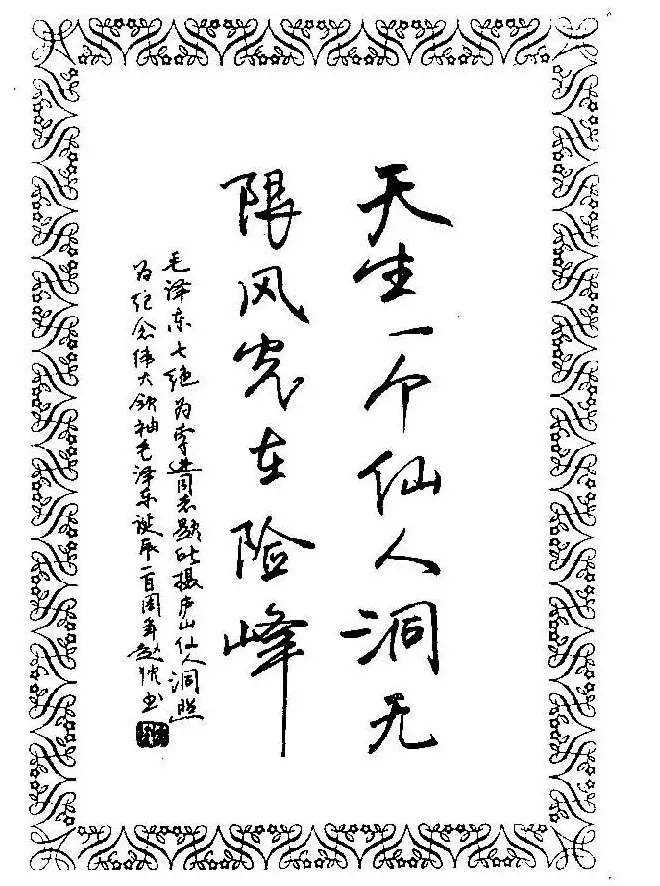 天生一个仙人洞无
限风光在险峰
毛泽东七绝为李进同志题所摄庐山仙人洞照
为纪念伟大领袖毛泽东诞辰一百周年赵 书